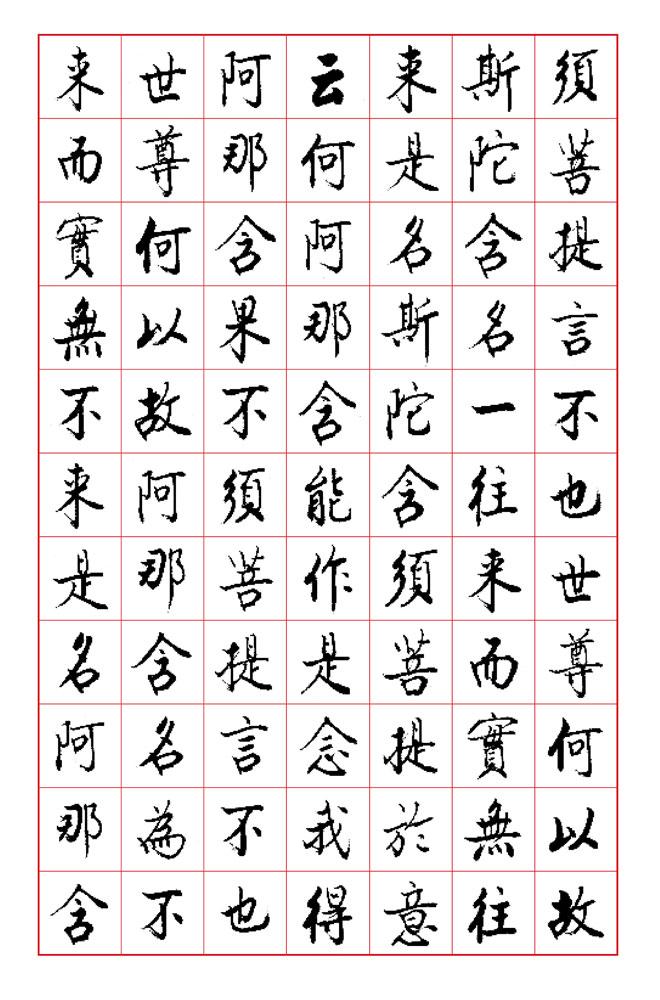 須菩提言不也世尊何以故
斯陀含名一往来而實無往
来是名斯陀含須菩提於意
云何阿那含能作是念我得
阿那含果不須菩提言不也
世尊何以故阿那含名為不
来而實無不来是名阿那含